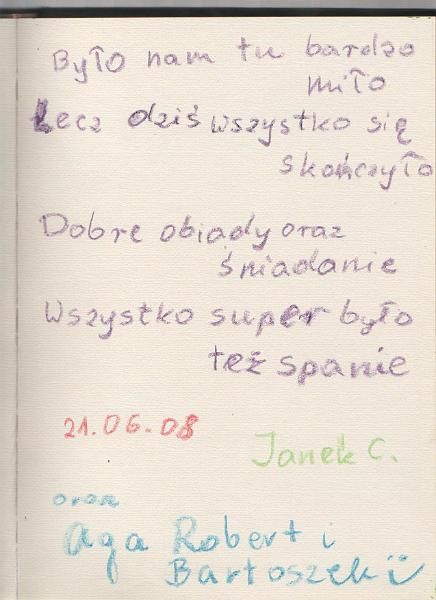 Było nam tu bardzo
miło
Lecz dziś wszystko się
skończyło
Dobre obiady oraz
śniadanie
Wszystko super było
też spanie
21.06.08
Janek C.
oraz
Aga Robert i
Bartoszek